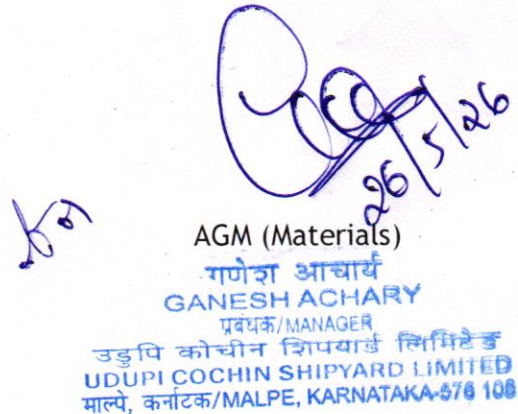 26/5/26
AGM (Materials)
गणेश आचार्य
GANESH ACHARY
प्रबंधक/MANAGER
उडुपि कोचीन शिपयार्ड लिमिटेड
UDUPI COCHIN SHIPYARD LIMITED
माल्पे, कर्नाटक/MALPE, KARNATAKA-576 108